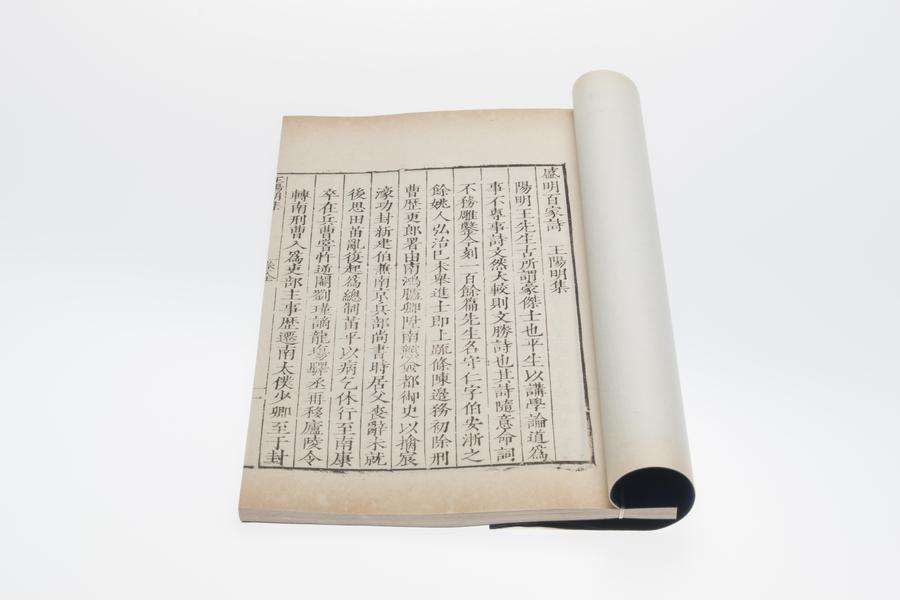 盛明百家詩 王陽明集
陽明王先生古所謂豪傑士也平生以講學論道爲
事不專事詩文然大較則文勝詩也其詩隨意命詞
不務雕鑿今刻一百餘篇先生名守仁字伯安浙之
餘姚人弘治巳未舉進士即上疏條陳邊務初除刑
曹歷吏郎署由南鴻臚卿陞南贛僉都御史以擒宸
濠功封新建伯兼南京兵部尚書時居父喪辭未就
後思田苗亂復起爲總制苗平以病乞休行至南康
卒在兵曹嘗忤逆閹劉瑾謫龍塲驛丞再移廬陵令
轉南刑曹入爲吏部主事歷遷南太僕少卿至于封
王陽明集